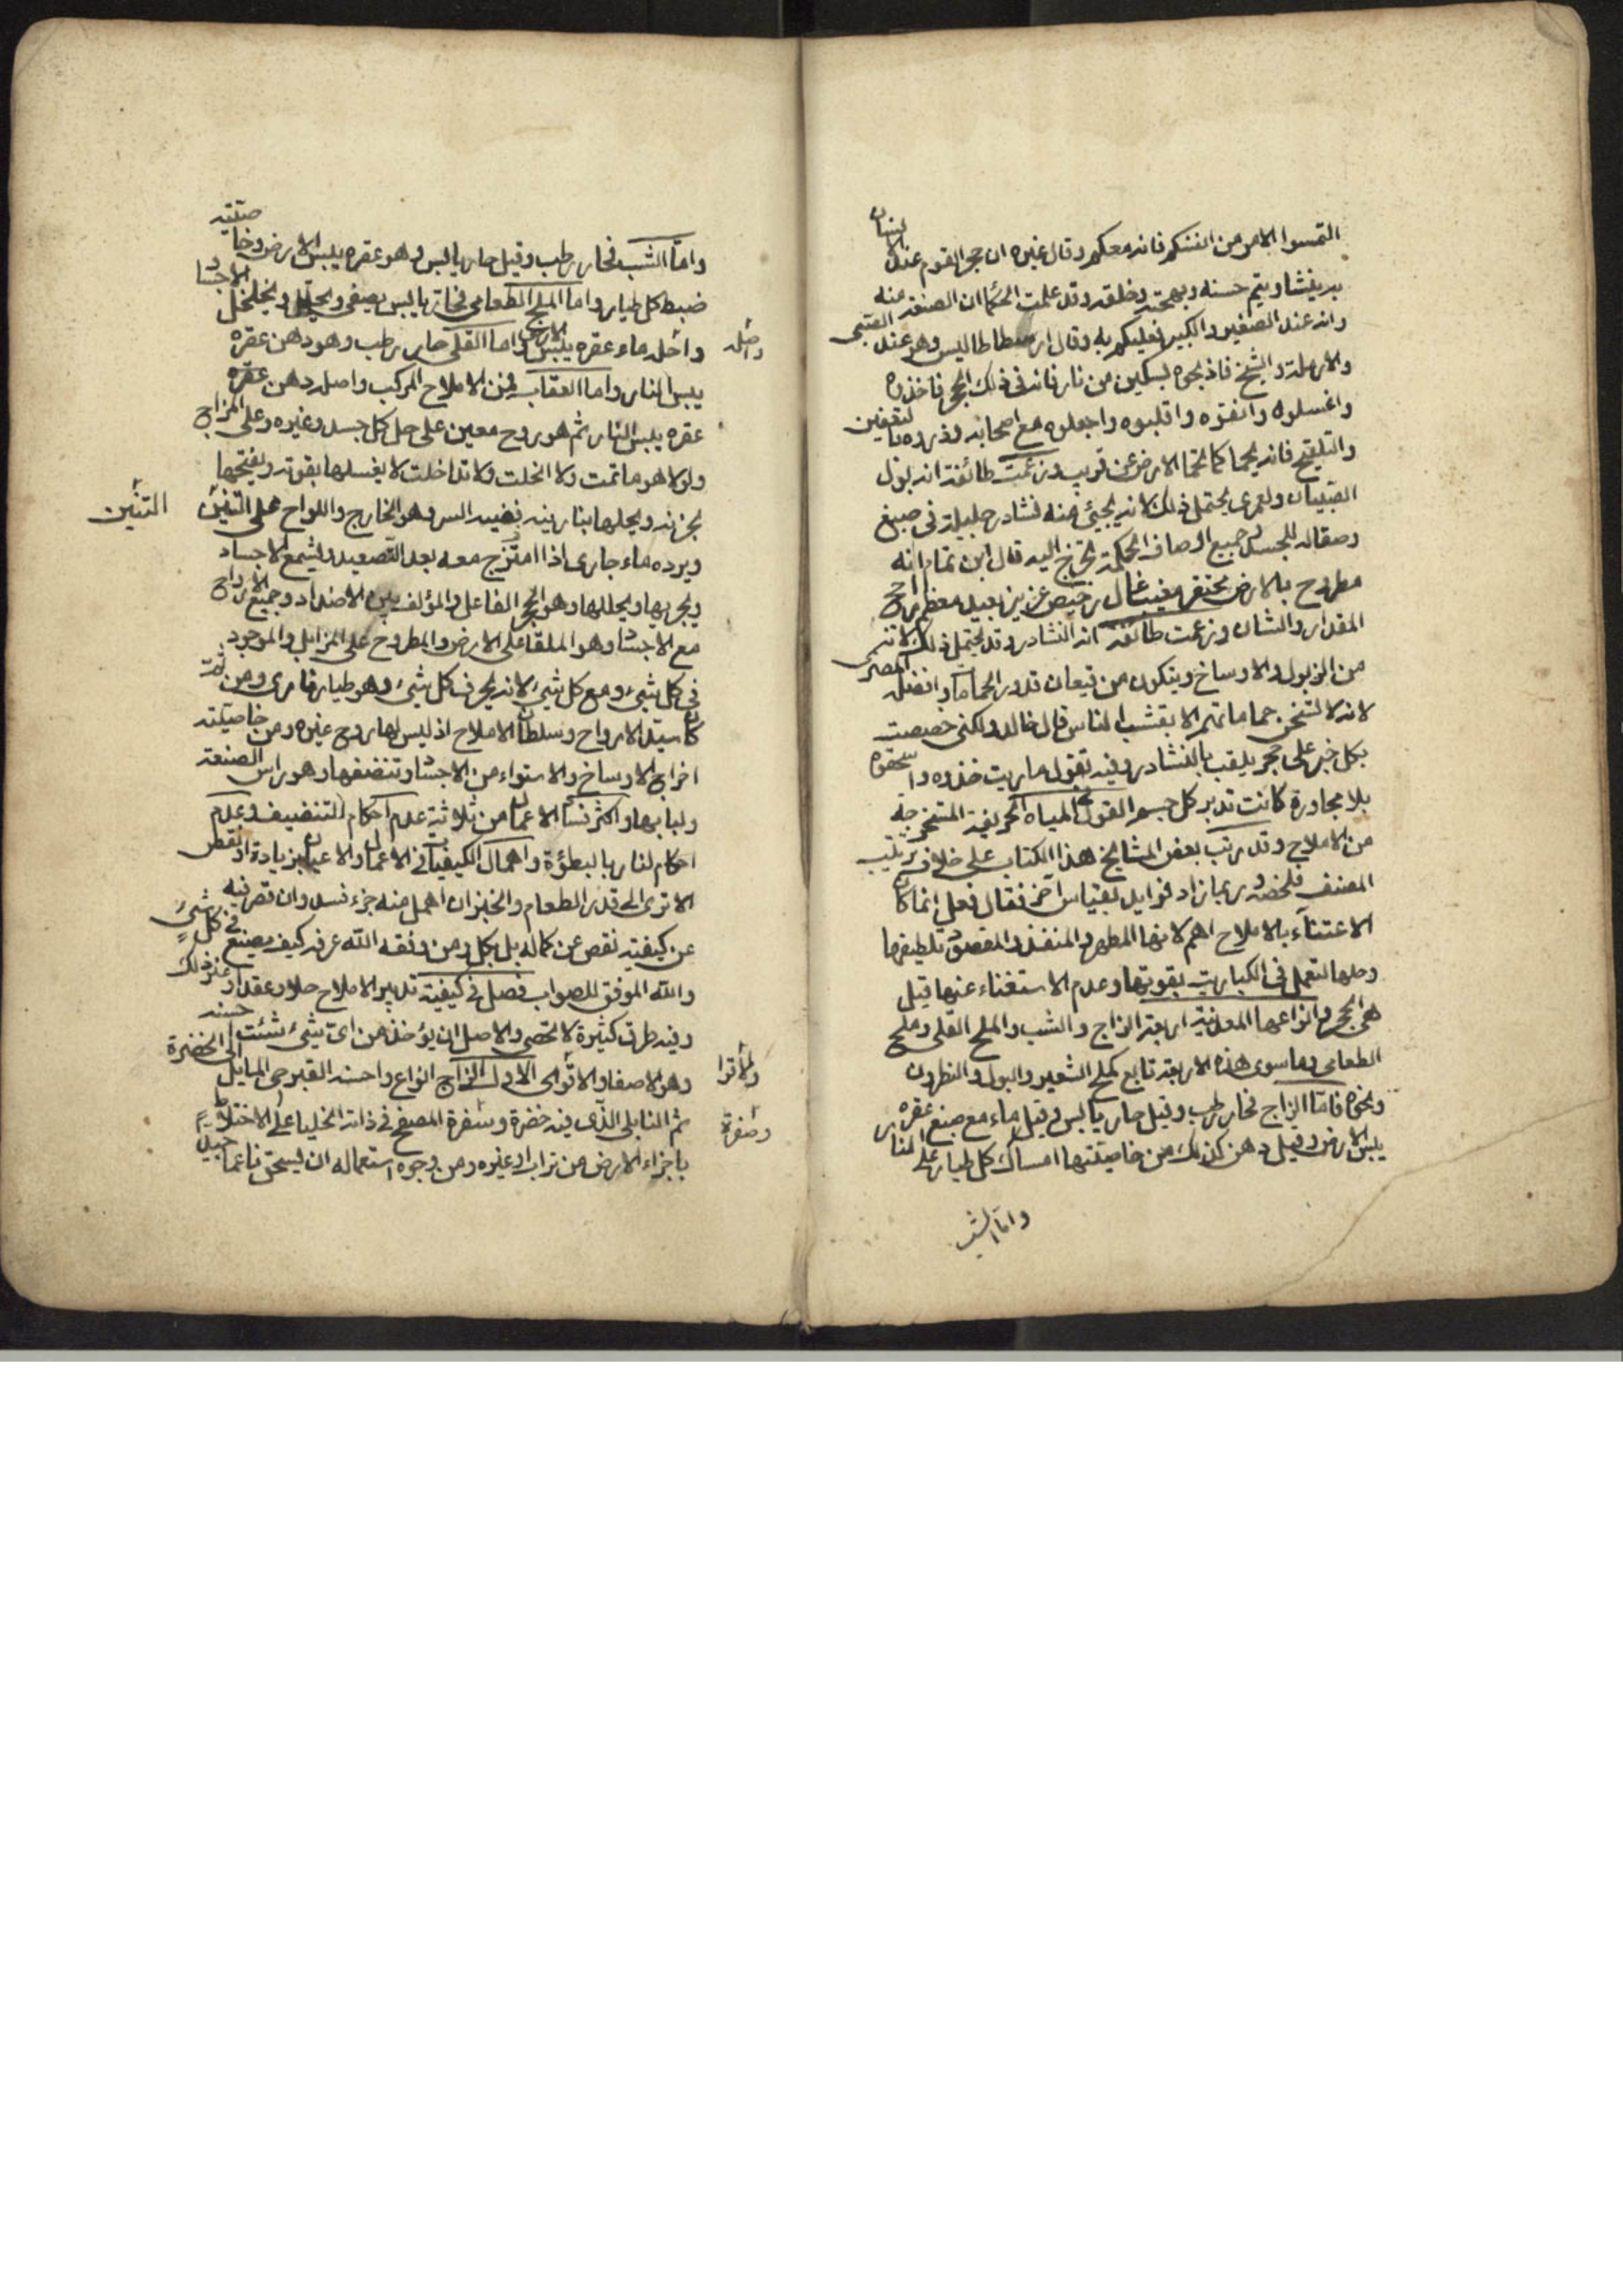 التمسوا الامر من انفسكم فانه معكم وقال غيره ان حجر القوم عند الانسان
به ينشا ويتم حسنه وبهجته وخلقه وقد علمت الحكما ان الصنعة منه
وانه عند الصغير والكبير فعليكم به وقال ارسطاطاليس وهو عند
والارملة والشيخ فاذبحوه بسكين من نار فانه في ذلك الحجر فاخذوه
واغسلوه وانقوه واقلبوه واجعلوه مع اصحابه وذروه
والتلقيح فانه يحيا كما تحيا الارض عن قريب وزعمت طائفة انه بول
الصبيان ولعمري يحتمل ذلك لانه يجيئ منه نشادر جليلة في صبغ
وصقاله للجسد جميع اوصاف الحكمة تخرج اليه قال ابن تمام انه
مطروح بالارض محتقر مغيب غال رخيص عزيز بعيد معظم راجح
المقدار والشان وزعمت طائفة انه النشادر وقد يحتمل ذلك لانه
من الزبول والاوساخ ويتكون من قيعان قدور الحمامات وافضله المصرى
لانه لا تسخن حماماتهم الا بقشب الناس قال خالد ولكنى خصصت
بكل خبر على حجر يلقب بالنشادر وفيه تقول ماريت خذوه واسحقوه
بلا مجاورة كانت تدبر كل جسم القول في المياه الحريفة المستخرجة
من الاملاح وقد رتب بعض المشايخ هذا الكتاب على خلاف ترتيب
المصنف فلخصه وربما زاد فوايد بقياس آخر فقال فعلى انما كان
الاعتناء بالاملاح اهم لانها المطهرة والمنفذ والمقصود تلطيفها
وحلها لتعمل في الكباريت بقوتها وعدم الاستغناء عنها قيل
هى الحجر وانواعها المعدنية اربعة الزاج والشب والملح القلى وملح
الطعامى وما سوى هذه الاربعة تابع كملح الشعير والبول والنطرون
ونحوه فاما الزاج فحار رطب وقيل حار يابس وقيل ماء مع صبغ عقره
يبس الارض وقيل دهن كذلك من خاصيتها امساك كل طيار على النار
واما الشب
واما الشب فحار رطب وقيل حار يابس وهو عقره يبس الارض وخاصيته
ضبط كل طيار واما الملح الطعامى فحار يابس يصفى ويحلل ويخلخل الاجساد
واصله ماء عقره يبس الارض واما القلى حار رطب وهو دهن عقره
واصله
يبس النار واما العقاب فمن الاملاح المركب واصله دهن عقره
عقره يبس النار ثم هو روح معين على حل كل جسد وغيره وعلى المزاج
ولولا هو ما تمت ولا انحلت ولا تداخلت لا يغسلها بقوته ويفتحها
بحرنه ويحلها بناريته ففيه السر وهو الخارج واللواح على التنين
التنين
ويرده ماء جارى اذا امتزج معه بعد التصعيد ليشمع الاجساد
ويجريها ويحللها وهو الحجر الفاعل والمؤلف بين الاضداد وجميع الارواح
مع الاجساد وهو الملقا على الارض والمطروح على المزابل والموجود
في كل شيء ومع كل شيء لانه يجرف كل شيء وهو طيار فار ومن ثمت
كان سيد الارواح وسلطان الاملاح اذ ليس لها روح غيره ومن خاصيته
اخراج الاوساخ والاستواء من الاجساد وتنضفها وهو راس الصنعة
ولبابها واكثر فساد الاعمال من ثلاثة عدم احكام التنضيف وعدم
احكام لنارها البطؤة واهمال الكيفيات في الاعمال والاعيان بزيادة او نقص
الا ترى الى قدر الطعام والخبز ان اهمل منه جزء فسد وان قصر فيه
عن كيفيته نقص عن كماله بل بكل ومن وفقه الله عرفه كيف يصنع في كل شيء
والله الموفق للصواب فصل في كيفية تدبير الاملاح حلا وعقدا وغير ذلك
وفيه طرق كثيرة لا تحصى والاصل ان يؤخذ من اى شيء شئت حسنه
وهو الاصفا والاقوى الاول الزاج انواع واحسنه القبرصى المايل الى الخضرة
ثم النابلى الذى فيه خضرة وشفرة المصفح في ذاته الخليا على الاختلاط
وصفرة
باجزاء الارض من تراب او غيره ومن وجوه استعماله ان يسحق ناعما جيدا